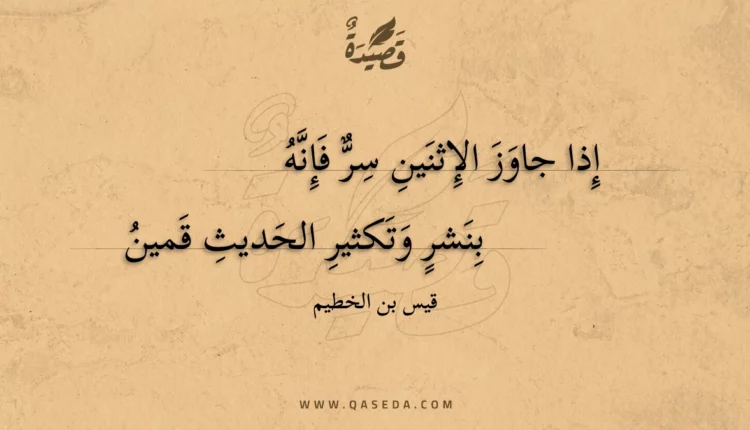 قَصِيْدَةٌ
إِذا جاوَزَ الإِثنَينِ سِرٌّ فَإِنَّهُ
بِنَشرٍ وَتَكثيرِ الحَديثِ قَمينُ
قيس بن الخطيم
WWW.QASEDA.COM